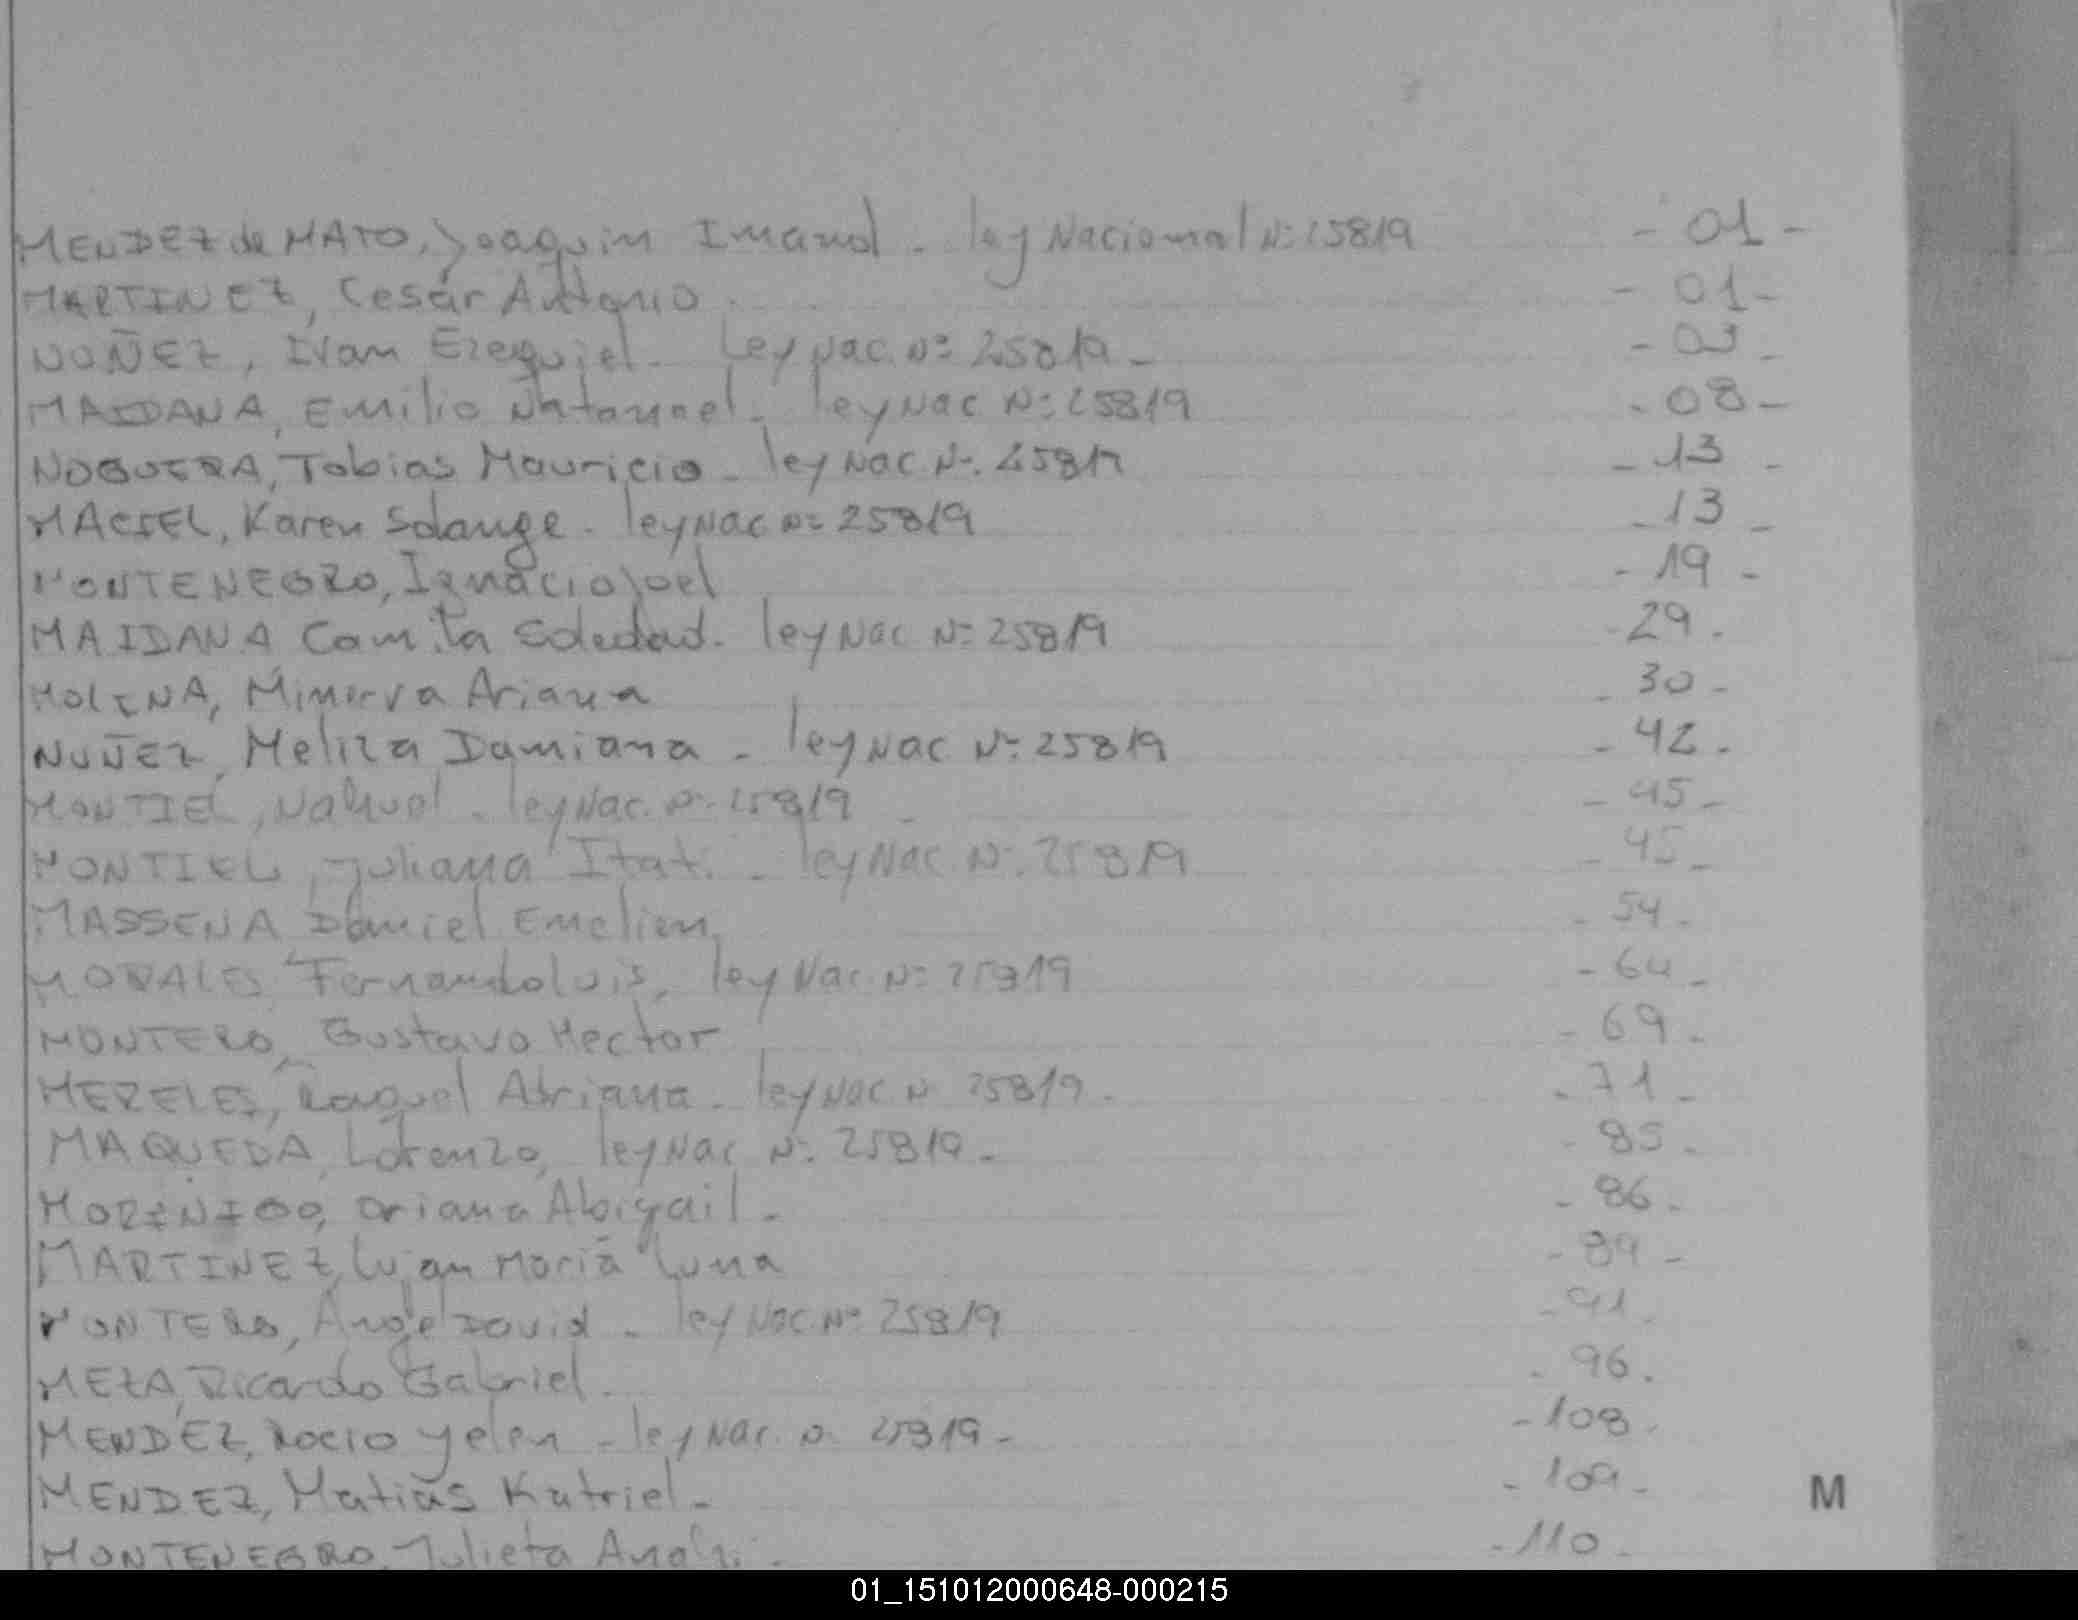 MENDEZ de MATO, Joaquin Imanol - ley Nacional N: 25819 - 01 -
MARTINEZ, Cesár Antonio - 01 -
NOÑEZ, Ivan Ezequiel - Ley Nac. Nº 25819 - - 03 -
MAIDANA, Emilio Natanael - ley Nac N: 25819 - 08 -
NOGUERA, Tobias Mauricio - ley Nac N: 25819 - 13 -
MACIEL, Karen Solange - ley Nac Nº 25819 - 13 -
MONTENEGRO, Ignacio Joel - 19 -
MAIDANA Camila Soledad - ley Nac Nº 25819 - 29 -
MOLINA, Minerva Ariana - 30 -
NUÑEZ, Meliza Damiana - ley Nac Nº 25819 - 42 -
MONTIEL, Nahuel - ley Nac. Nº 25819 - - 45 -
MONTIEL, Juliana Itati - ley Nac Nº 25819 - 45 -
MASSENA Daniel Emelien - 54 -
MORALES Fernando Luis, ley Nac. Nº 25819 - 64 -
MONTERO, Gustavo Hector - 69 -
MERELES, Raquel Abriana - ley Nac N 25819 - - 71 -
MAQUEDA, Lorenzo, ley Nac Nº 25819 - - 85 -
MORINIGO, Oriana Abigail - - 86 -
MARTINEZ, Lujan Maria Luna - 89 -
MONTERO, Angel David - ley Nac. Nº 25819 - 91 -
MEZA, Ricardo Gabriel - 96 -
MENDEZ, Rocio Yelen - ley Nac. Nº 25819 - - 108 -
MENDEZ, Matias Katriel - - 109 -
M
MONTENEGRO, Julieta Anahi - - 110 -
01_151012000648-000215